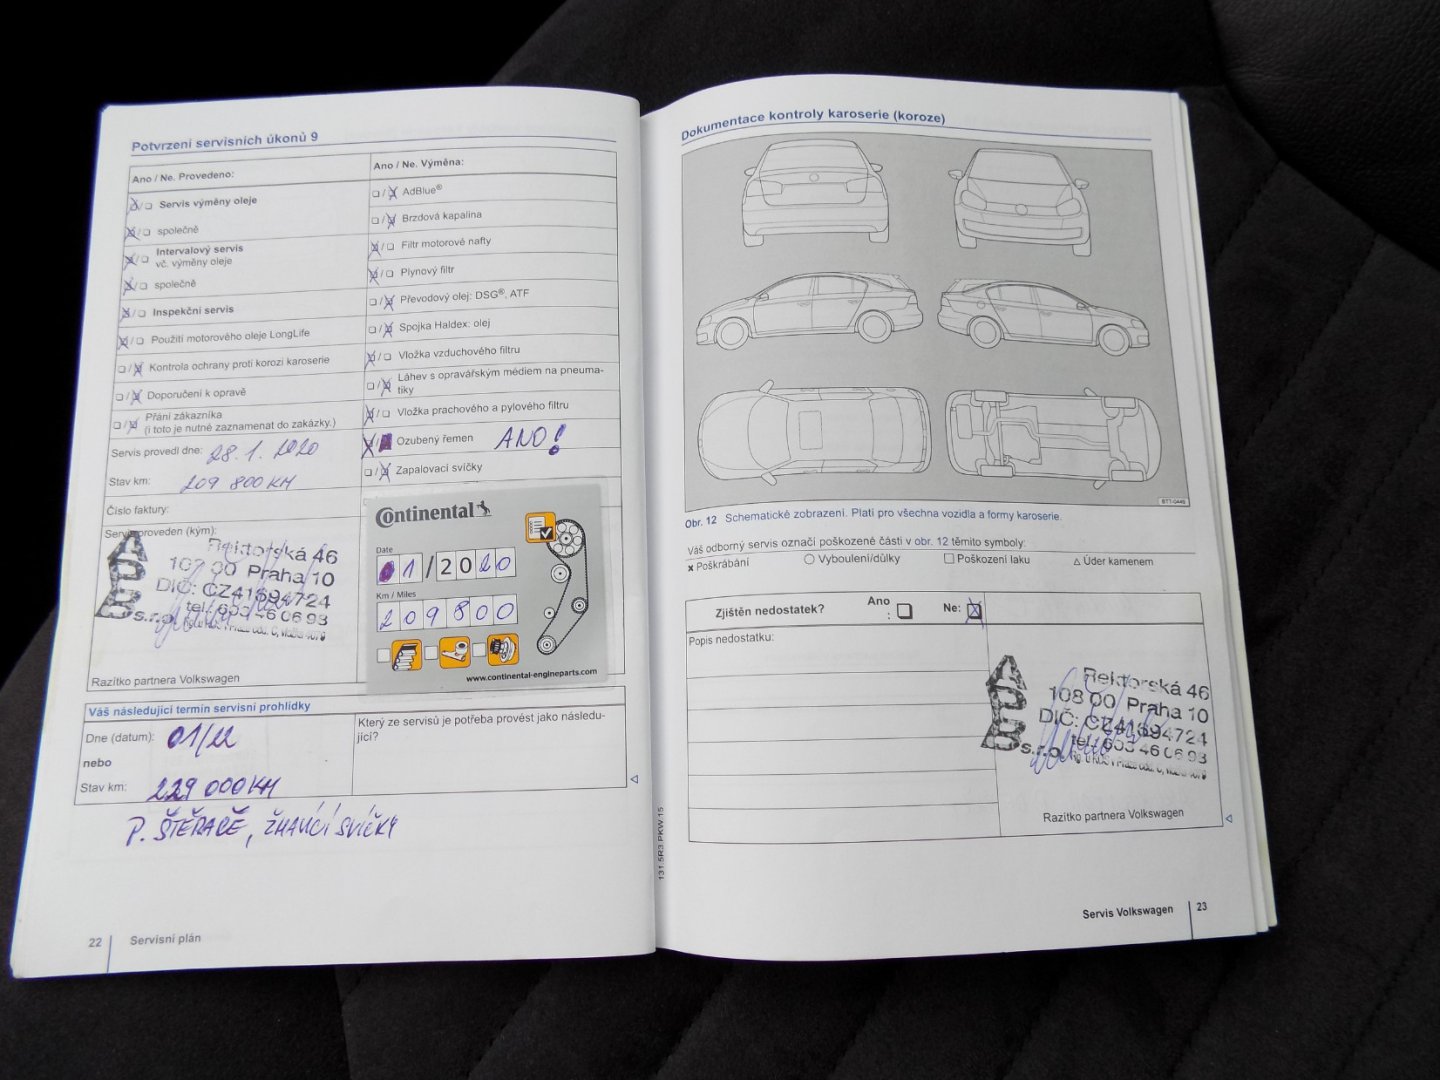 Potvrzení servisních úkonů 9
Ano / Ne. Provedeno:
Servis výměny oleje
společně
Intervalový servis
vč. výměny oleje
společně
Inspekční servis
Použití motorového oleje LongLife
Kontrola ochrany proti korozi karoserie
Doporučení k opravě
Přání zákazníka
(i toto je nutné zaznamenat do zakázky.)
Servis provedl dne: 28. 1. 2020
Stav km: 209 800 KM
Číslo faktury:
Servis proveden (kým):
APB s.r.o.
Rektorská 46
108 00 Praha 10
DIČ: CZ41694724
tel.: 603 46 06 93
Razítko partnera Volkswagen
Ano / Ne. Výměna:
AdBlue®
Brzdová kapalina
Filtr motorové nafty
Plynový filtr
Převodový olej: DSG®, ATF
Spojka Haldex: olej
Vložka vzduchového filtru
Láhev s opravářským médiem na pneuma-
tiky
Vložka prachového a pylového filtru
Ozubený řemen ANO!
Zapalovací svíčky
Continental
Date
01/2020
Km / Miles
209800
www.continental-engineparts.com
Váš následující termín servisní prohlídky
Dne (datum): 01/22
nebo
Stav km: 229 000 KM
Který ze servisů je potřeba provést jako následu-
jící?
P. ŠTĚRAČE, ŽHAVÍCÍ SVÍČKY
22 Servisní plán
131.5R3.PKW.15
Dokumentace kontroly karoserie (koroze)
BT1-0446
Obr. 12 Schematické zobrazení. Platí pro všechna vozidla a formy karoserie.
Váš odborný servis označí poškozené části v obr. 12 těmito symboly:
x Poškrábání
Vyboulení/důlky
Poškození laku
Úder kamenem
Zjištěn nedostatek? Ano
: Ne:
Popis nedostatku:
APB s.r.o.
Rektorská 46
108 00 Praha 10
DIČ: CZ41694724
tel.: 603 46 06 93
Razítko partnera Volkswagen
Servis Volkswagen 23